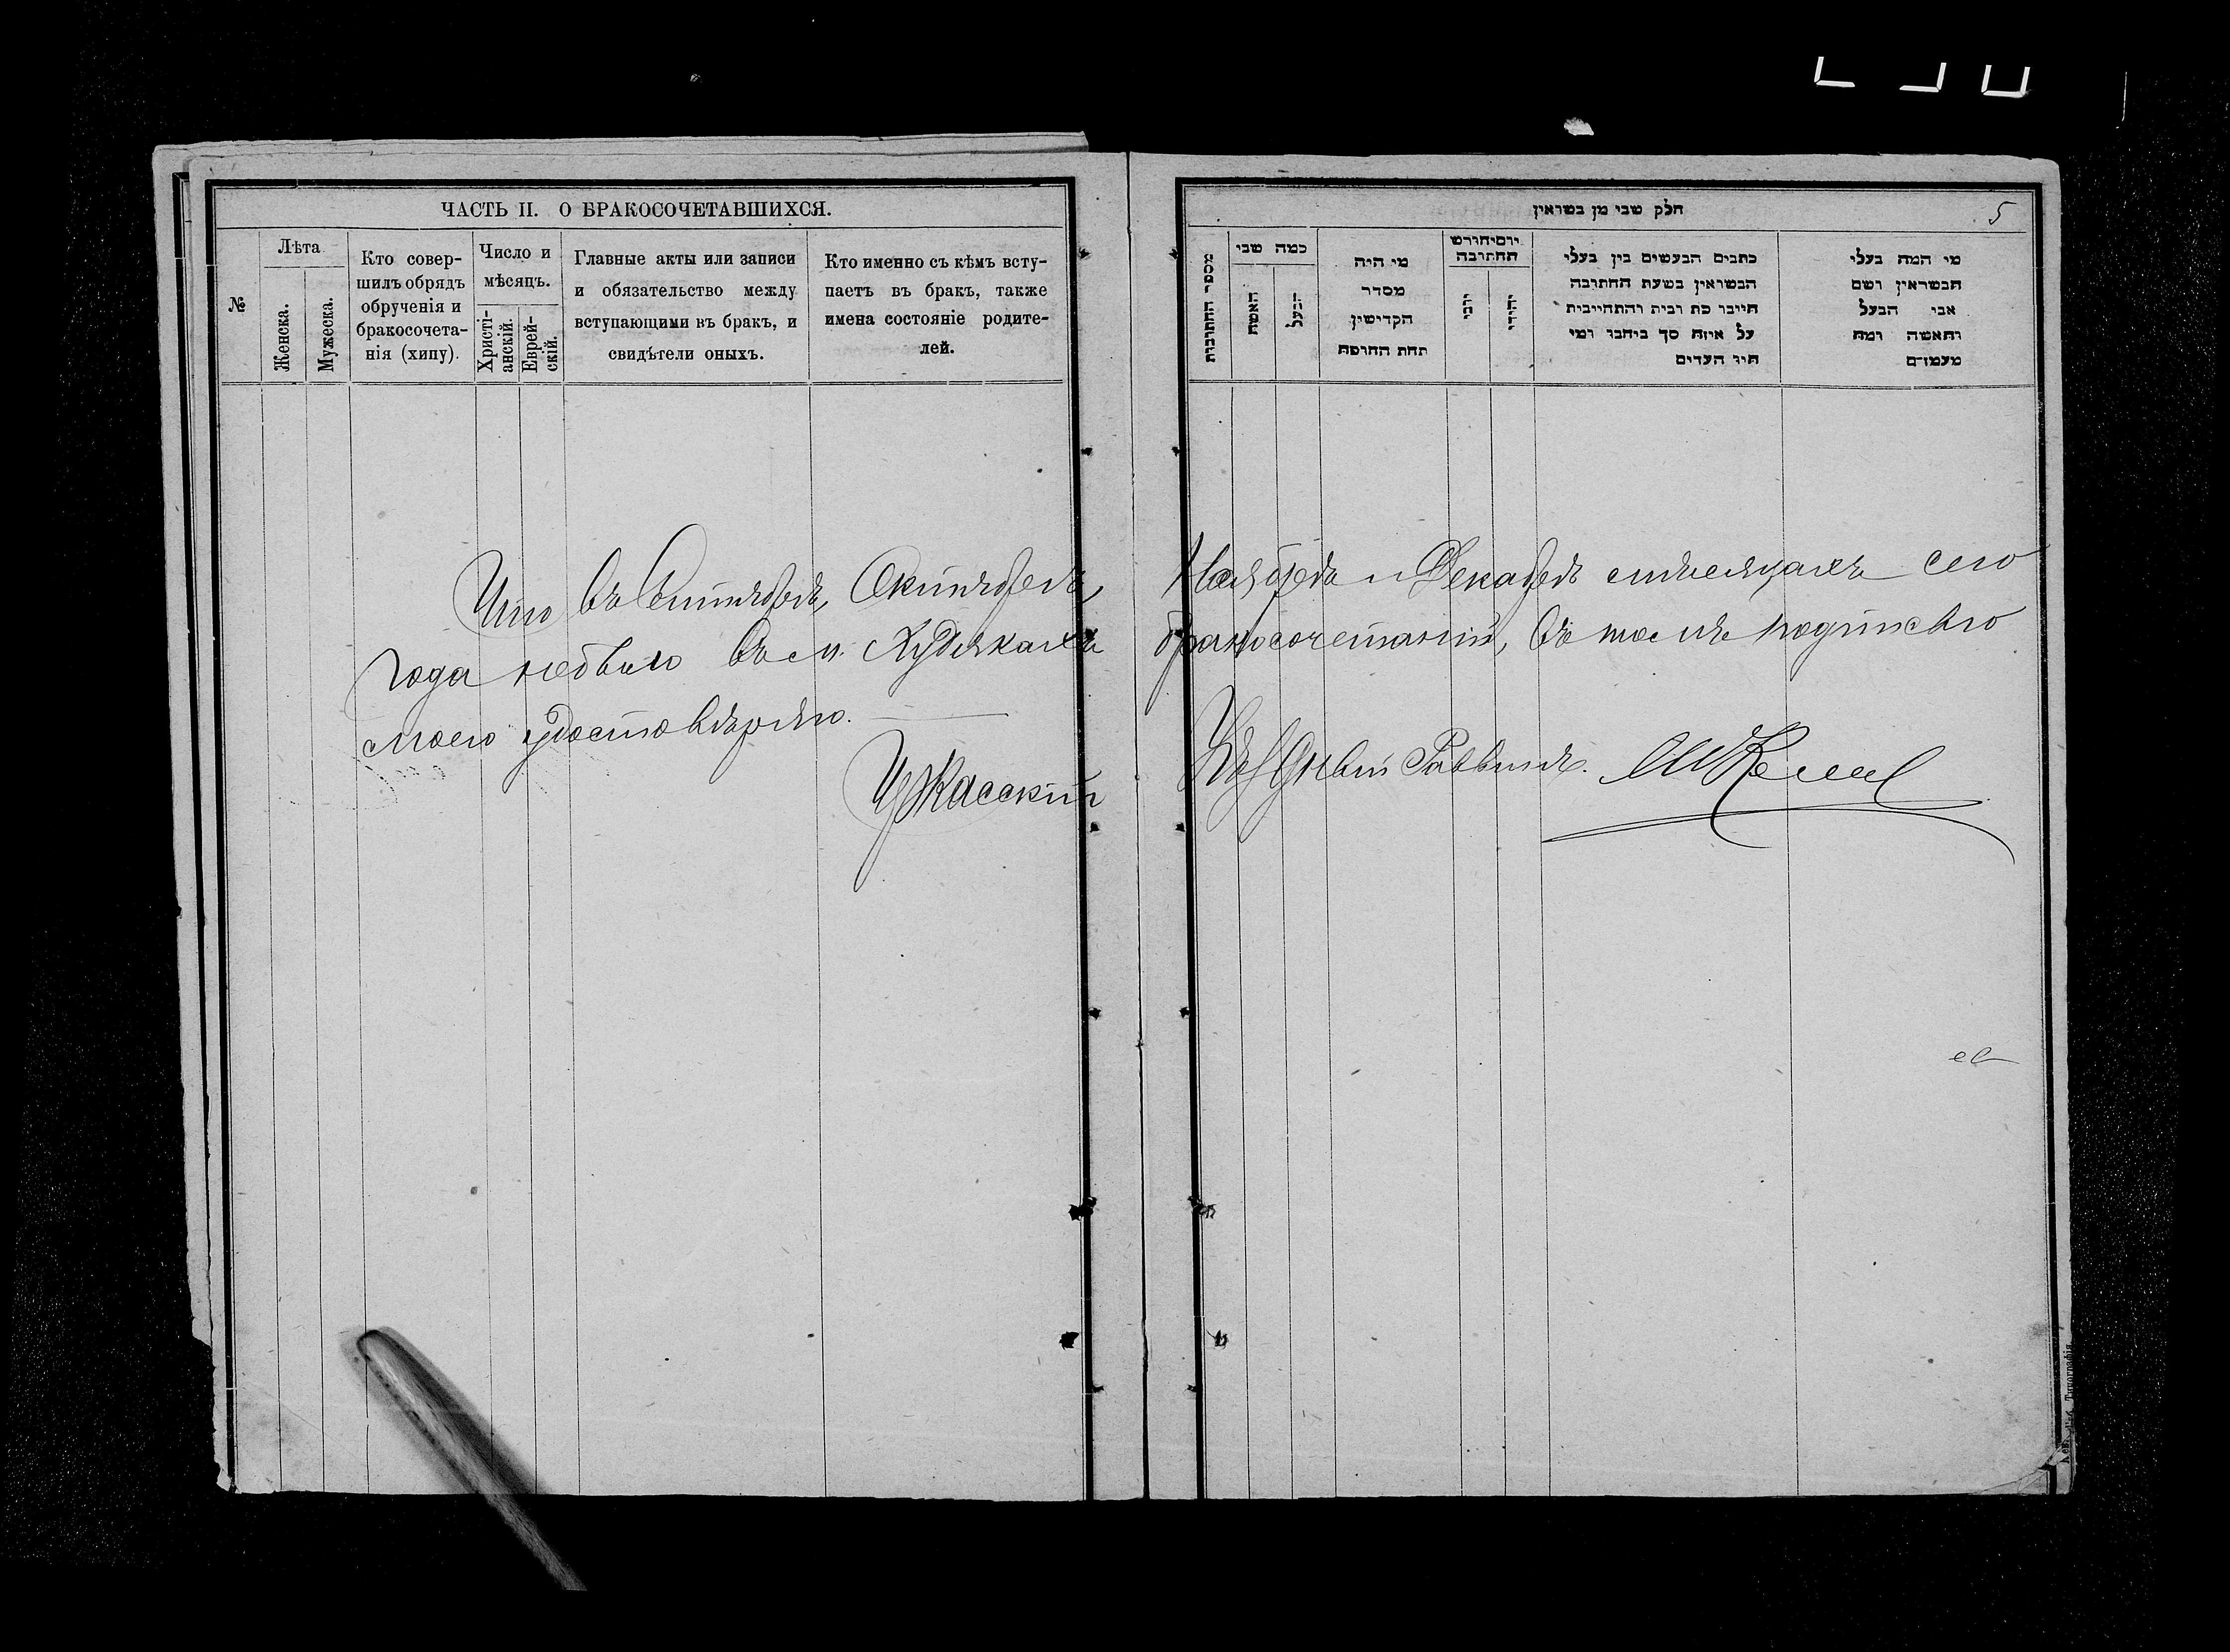 ЧАСТЬ II. О БРАКОСОЧЕТАВШИХСЯ.
№
Лѣта
Женска.
Мужеска.
Кто совер-
шилъ обрядъ
обрученія и
бракосочета-
нія (хипу).
Число и
мѣсяцъ.
Христі-
анскій.
Еврей-
скій.
Главные акты или записи
и обязательство между
вступающими въ бракъ, и
свидѣтели оныхъ.
Кто именно съ кѣмъ всту-
паетъ въ бракъ, также
имена состояніе родите-
лей.
חלק שבי מן בשואין
5
מספר החתובות
כמה שבי
האשה
הבעל
מי היה
מסדר
הקדישין
תחת החופה
יוםיחודש
החתובה
כתבים הבעשים בין בעלי
הבשואין בשעת החתובה
חייבו כת רבית והתחייבית
על איזה סך ביחבו ומי
היו העדים
מי המה בעלי
הבשואין ושם
אבי הבעל
והאשה ומה
מעמדם
Что въ Сентябрѣ, Октябрѣ, Ноябрѣ и Декабрѣ мѣсяцахъ сего
года небыло въ м. Худякахъ бракосочетаній, въ томъ подписью
моею удостовѣряю.
Черкасскій Уѣздный Раввинъ.